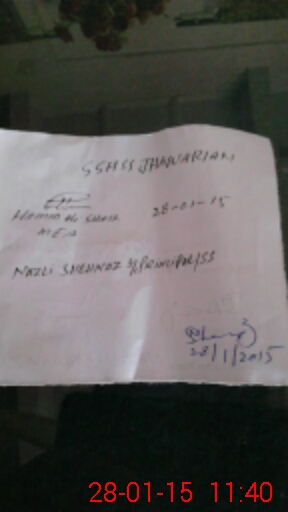 GGHSS JHAWARIAN
28-01-15
MEA
NAZLI SHEHNAZ V/PRINCIPAL/SS
28/1/2015
28-01-15 11:40